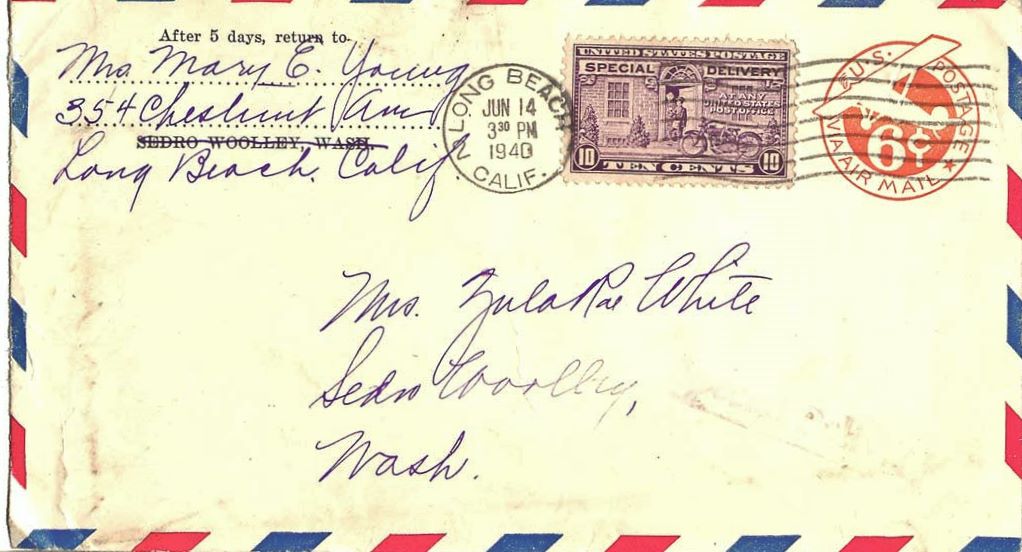 After 5 days, return to
Mrs Mary E. Young
354 Chestnut Ave
SEDRO WOOLLEY, WASH.
Long Beach, Calif
LONG BEACH
JUN 14
3 30 PM
1940
CALIF.
UNITED STATES POSTAGE
SPECIAL DELIVERY
AT ANY
UNITED STATES
POST OFFICE
10 TEN CENTS 10
U.S. POSTAGE
6¢
VIA AIR MAIL
Mrs. Zula Rae White
Sedro Woolley,
Wash.